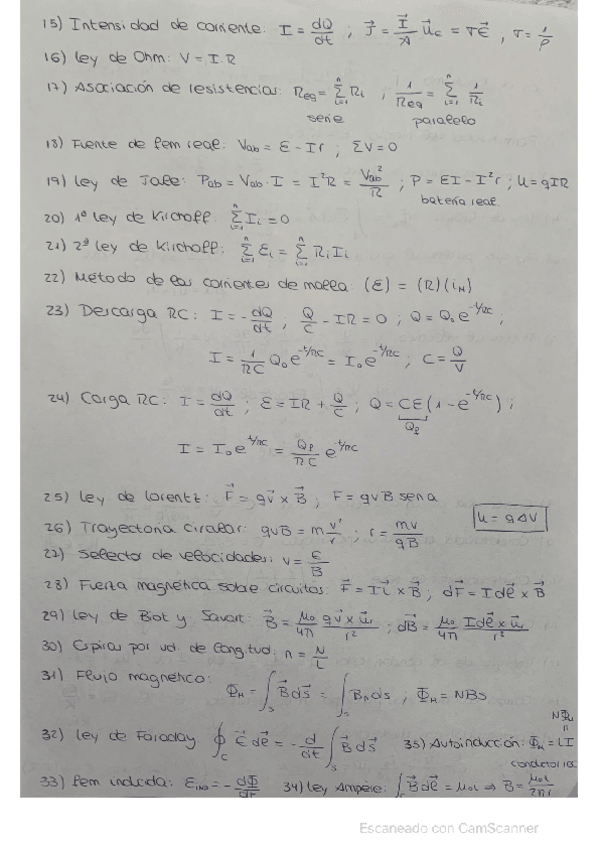 15) Intensidad de corriente: I = dQ/dt ; J⃗ = I⃗/A u⃗c = σε⃗ , σ = 1/ρ
16) Ley de Ohm: V = I·R
17) Asociación de resistencias: Req = Σ(i=1→n) Ri ; 1/Req = Σ(i=1→n) 1/Ri
serie paralelo
18) Fuente de fem real: Vab = ε - Ir ; ΣV = 0
19) Ley de Joule: Pab = Vab · I = I²R = Vab²/R ; P = EI - I²r ; U = qIR
batería real
20) 1ª Ley de Kirchoff: Σ(i=1→n) Ii = 0
21) 2ª Ley de Kirchoff: Σ(i=1→n) Ei = Σ(i=1→n) Ri Ii
22) Método de las corrientes de malla: (ε) = (R)(iM)
23) Descarga RC: I = -dQ/dt ; Q/C - IR = 0 ; Q = Q₀e^(-t/RC) ;
I = 1/RC Q₀e^(-t/RC) = I₀e^(-t/RC) ; C = Q/V
24) Carga RC: I = dQ/dt ; ε = IR + Q/C ; Q = CE(1 - e^(-t/RC)) ;
Qp
I = I₀e^(-t/RC) = Qp/RC e^(-t/RC)
25) Ley de Lorentz: F⃗ = qv⃗ × B⃗ ; F = qvB senα
U = qΔV
26) Trayectoria circular: qvB = m v²/r ; r = mv/qB
27) Selector de velocidades: v = E/B
28) Fuerza magnética sobre circuitos: F⃗ = I l⃗ × B⃗ ; dF⃗ = I dl⃗ × B⃗
29) Ley de Biot y Savart: B⃗ = μ₀/4π qv⃗ × u⃗r/r² ; dB⃗ = μ₀/4π Idl⃗ × u⃗r/r²
30) Espiras por ud. de longitud: n = N/L
31) Flujo magnético: Φ_M = ∫s B⃗ ds⃗ = ∫s Bn ds ; Φ_M = NBS
NΦM
"
32) Ley de Faraday ∮c ε⃗ dl⃗ = -d/dt ∫s B⃗ ds⃗ 35) Autoinducción: Φm = LI
33) fem inducida: εIND = -dΦ/dt 34) Ley Ampère: ∫c B⃗ dl⃗ = μ₀I ⇒ B = μ₀I/2πr
Escaneado con CamScanner